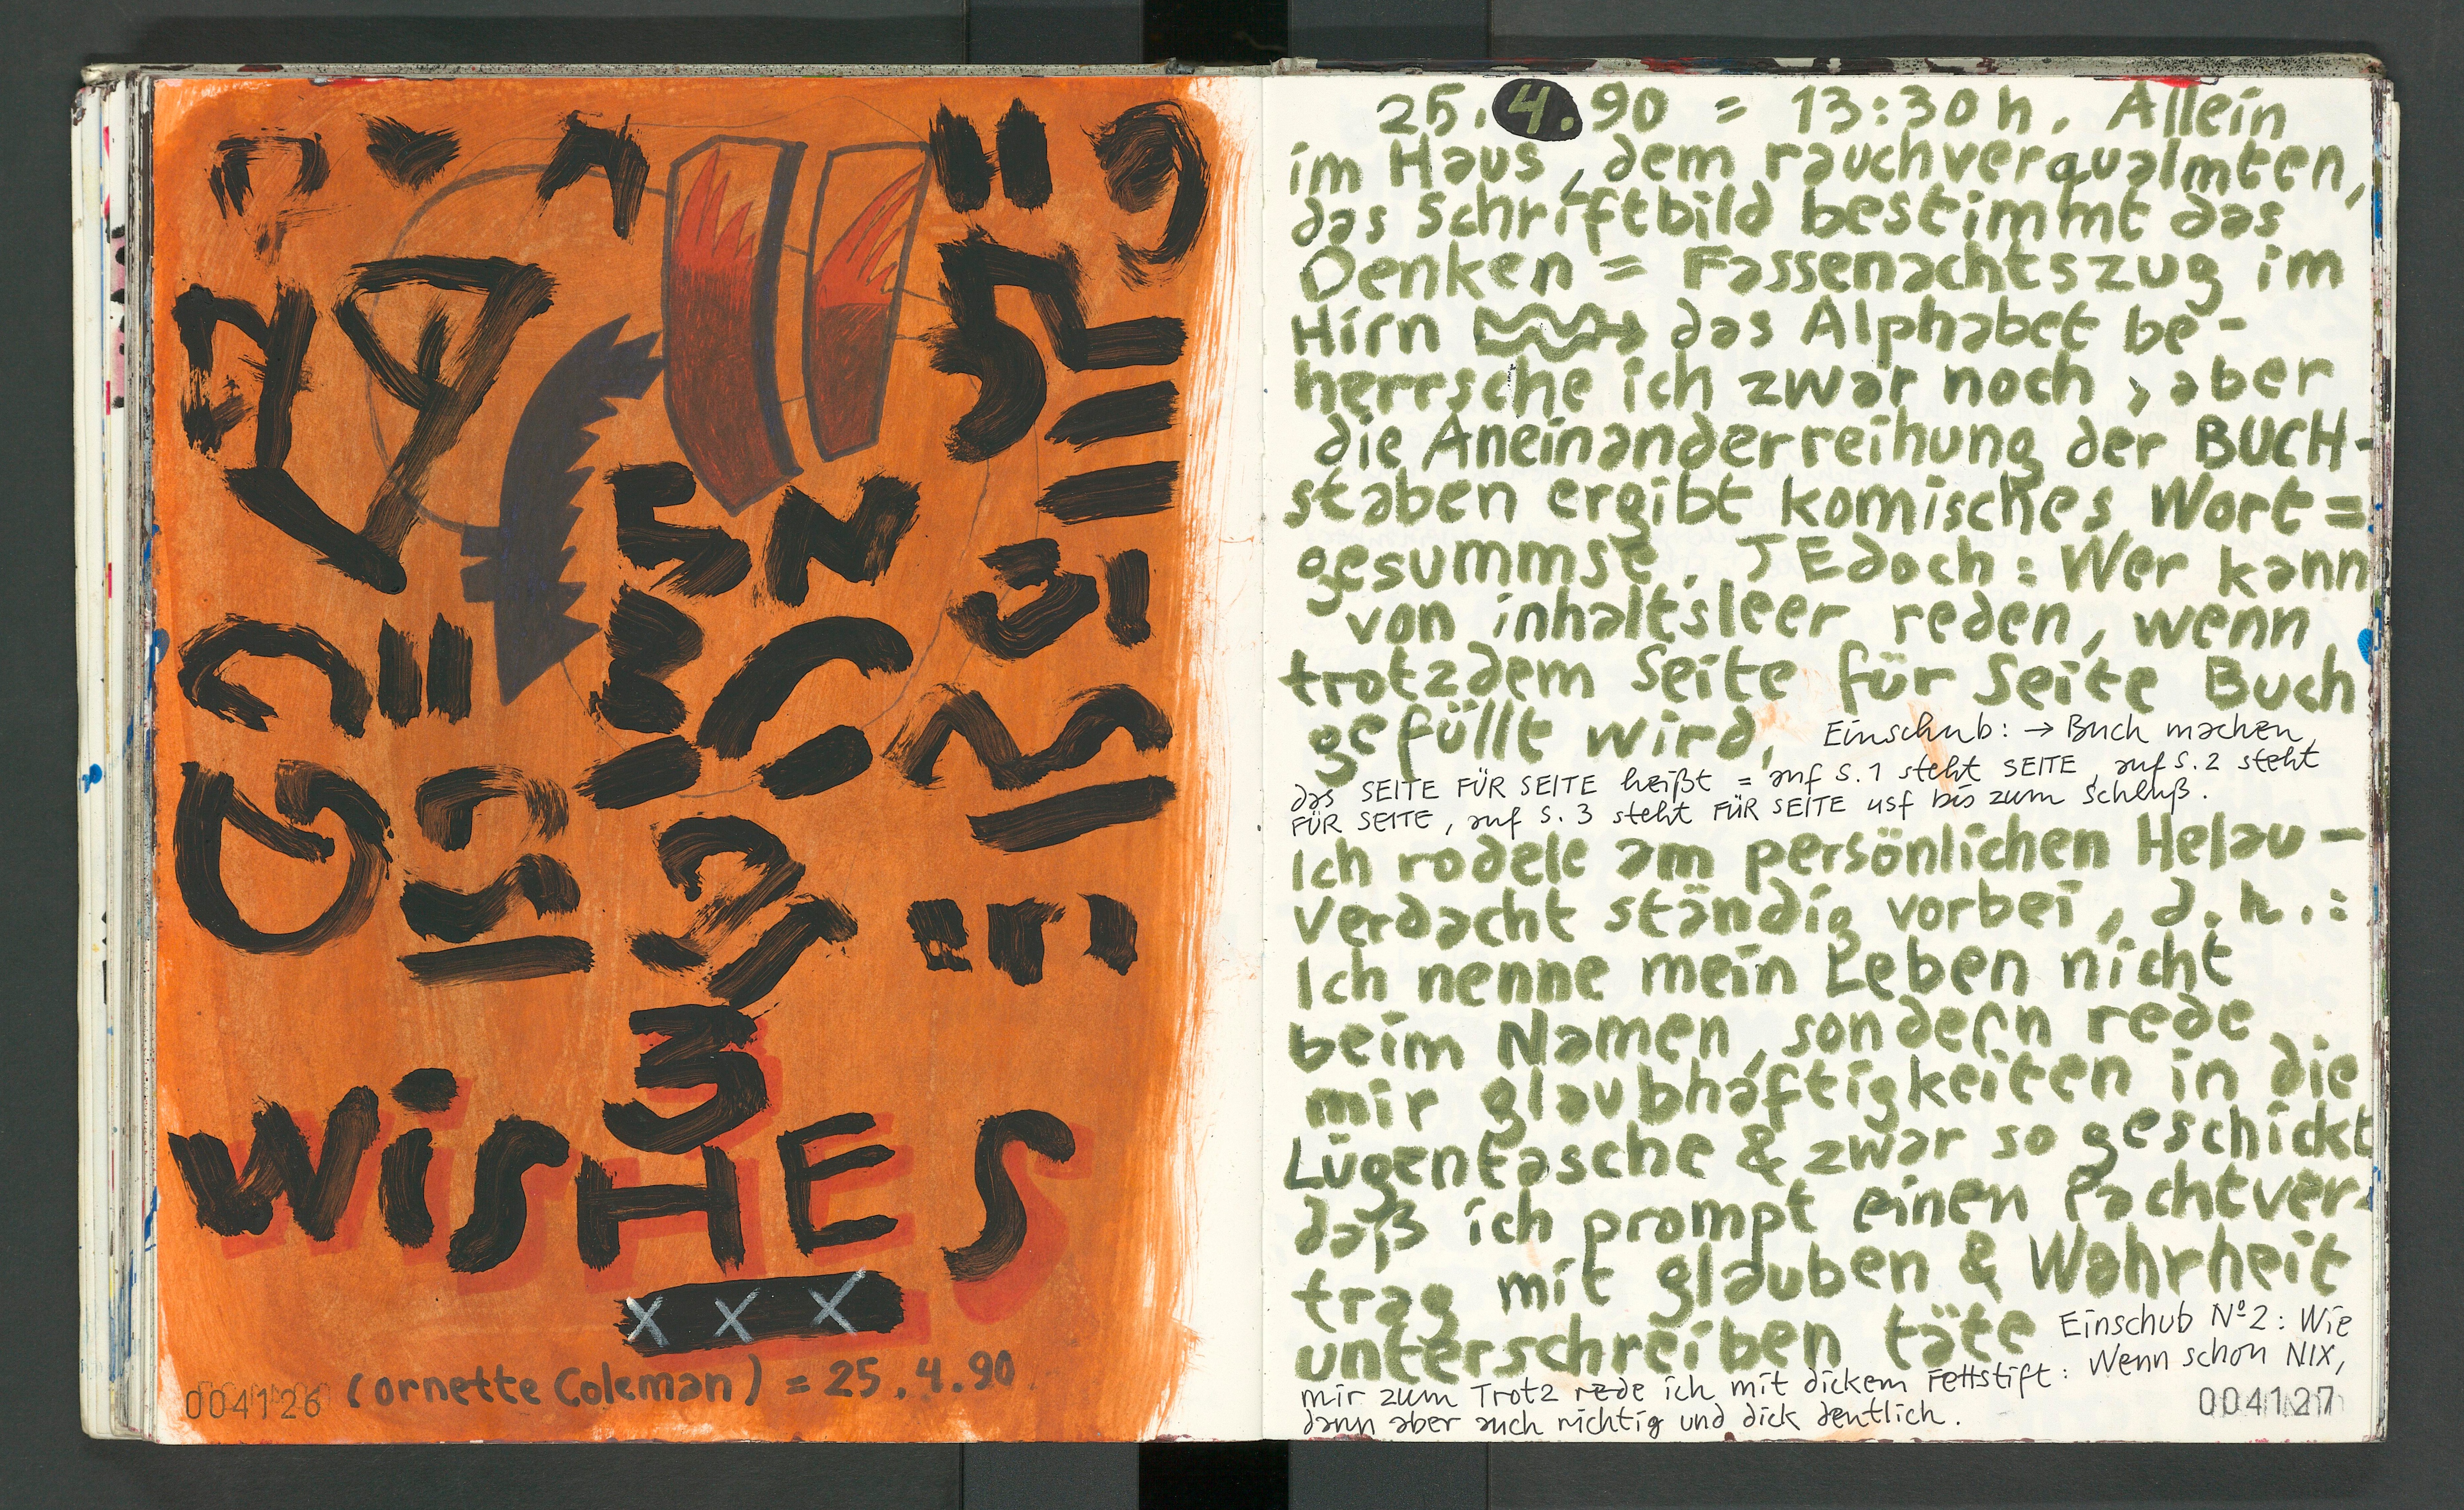 3
WiSHES
X X X
(ornette Coleman) = 25.4.90
004126
25.4.90 = 13:30 h. Allein
im Haus, dem rauchverqualmten,
das Schriftbild bestimmt das
Denken = Fassenachtszug im
Hirn das Alphabet be-
herrsche ich zwar noch, aber
die Aneinanderreihung der BUCH-
staben ergibt komisches Wort=
gesummse. JEdoch: Wer kann
von inhaltsleer reden, wenn
trotzdem Seite für Seite Buch
gefüllt wird, Einschub: → Buch machen,
das SEITE FÜR SEITE heißt = auf S.1 steht SEITE, auf S.2 steht
FÜR SEITE, auf S.3 steht FÜR SEITE usf bis zum Schluß.
Ich rodele am persönlichen Helau-
Verdacht ständig vorbei, d.h.:
Ich nenne mein Leben nicht
beim Namen, sondern rede
mir glaubhaftigkeiten in die
Lügentasche & zwar so geschickt
daß ich prompt einen Pachtver-
trag mit glauben & Wahrheit
unterschreiben täte Einschub Nº2: Wie
mir zum Trotz rede ich mit dickem Fettstift: Wenn schon NIX,
dann aber auch richtig und dick deutlich.
004127